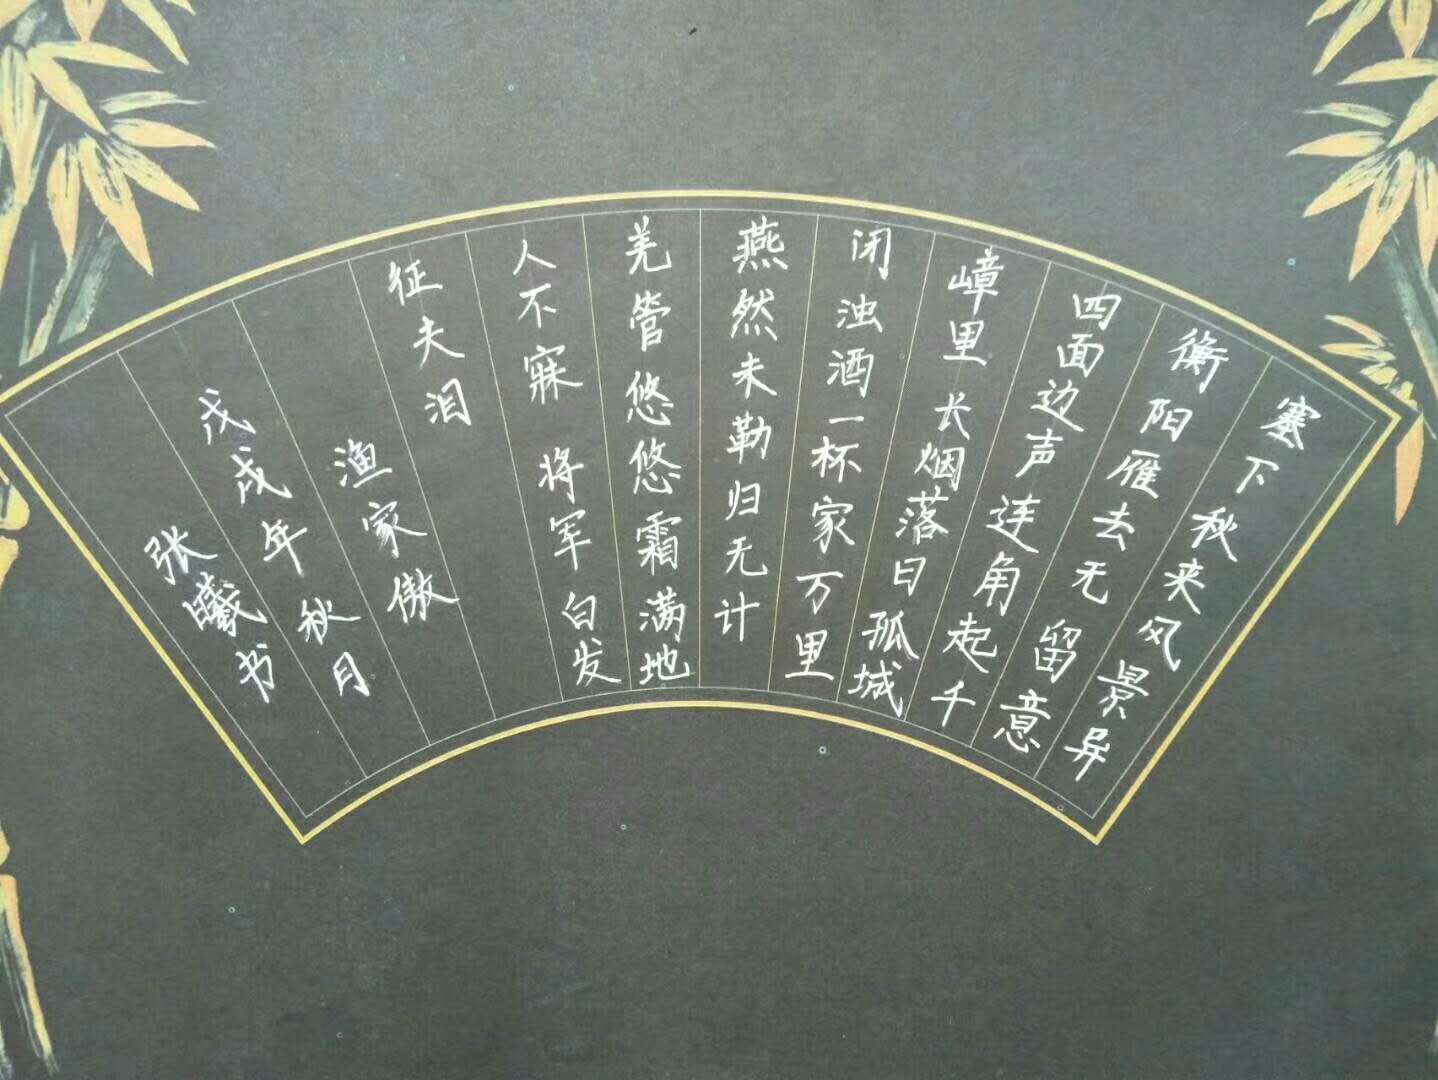 塞下秋来风景异
衡阳雁去无留意
四面边声连角起千
嶂里长烟落日孤城
闭浊酒一杯家万里
燕然未勒归无计
羌管悠悠霜满地
人不寐将军白发
征夫泪
渔家傲
戊戌年秋月
张曦书